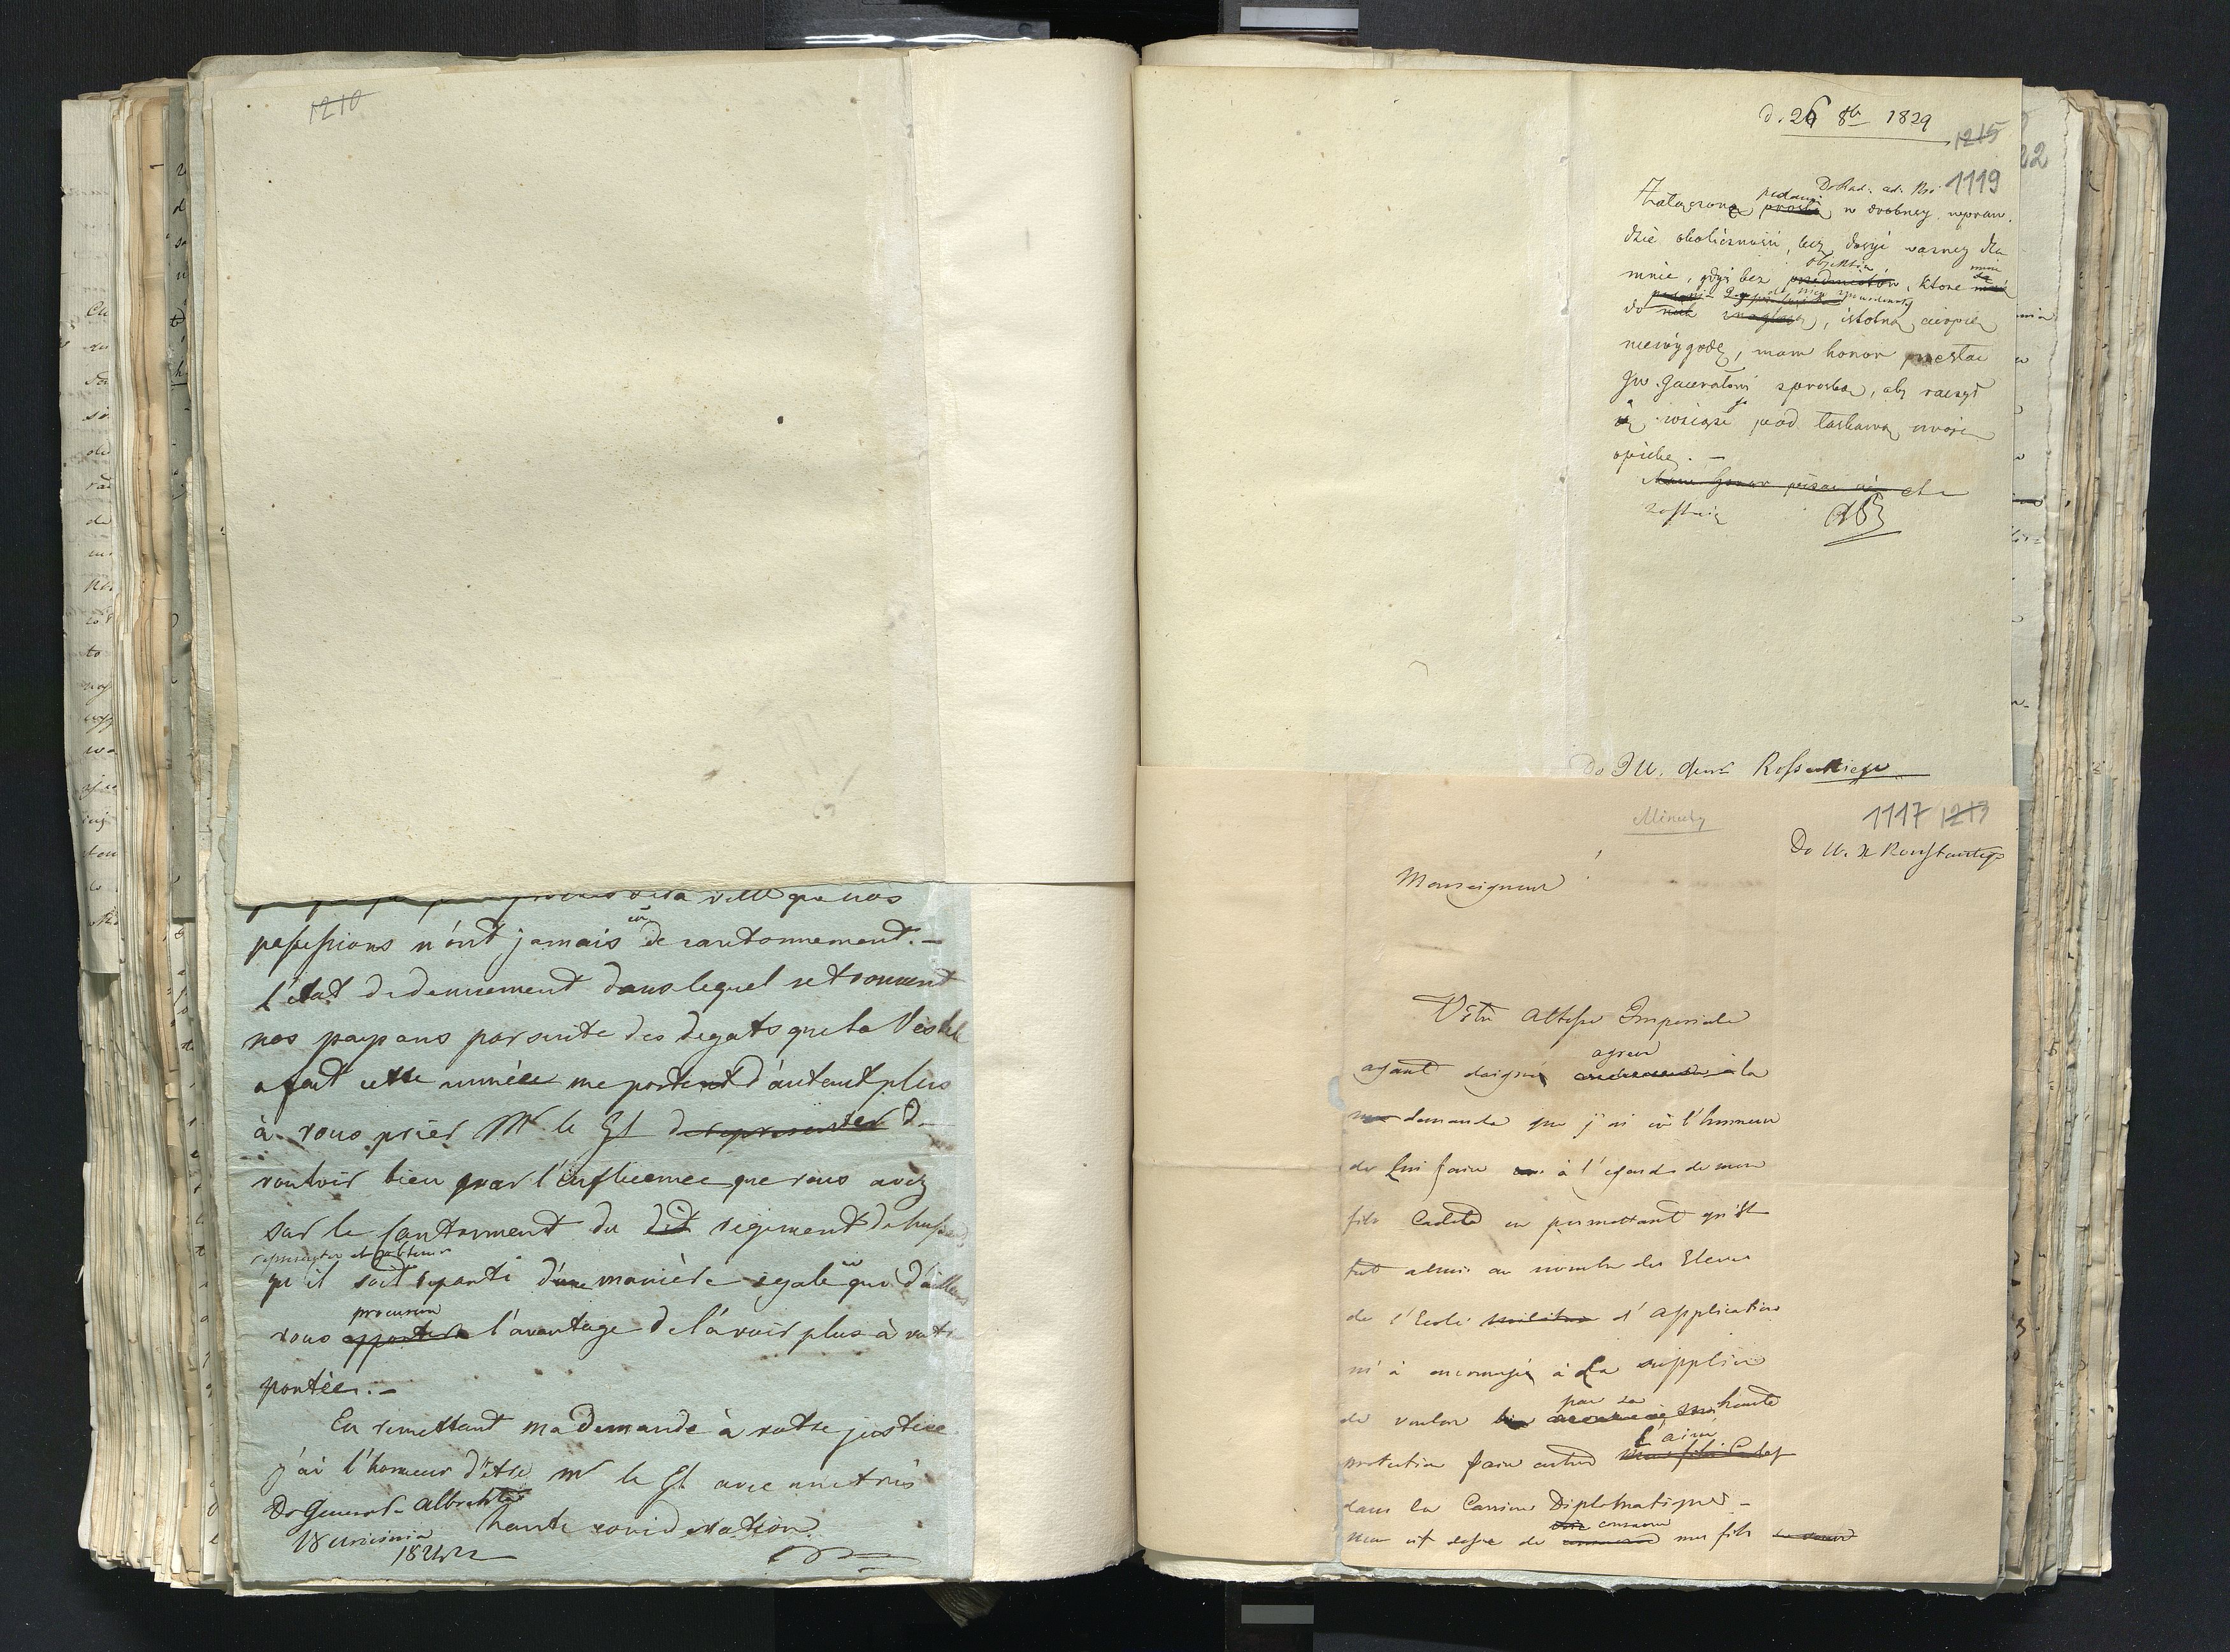 1210
possessions n'ont jamais eu de cantonnement. –
l'état de denuement dans lequel se trouvent
nos paysans par suite des degats que la Vistule
a fait cette année me portent d'autant plus
à vous prier Mr le Gl de representer de
vouloir bien par l'influence que vous avez
sur le cantonment du dit regiment
representer et obtenir
qu'il soit reparti d'une manière egale qui d'ailleurs
procurera
vous apportera l'avantage de l'avoir plus à votre
portée. –
En remettant ma demande à votre justice
j'ai l'honneur d'être Mr le Gl avec une très
haute consideration
Do General Albrechta
18
d. 26 8br 1829
1215
1119
22
podanie
Załączoną prosbę w drobney wpraw.
dzie okoliczności, lecz dosyć ważney dla
objektów
mnie, gdyż bez przedmiotów, które
do nich, istotną cierpię
niewygodę, mam honor przesłać
JW. Generałowi z prosbą, aby raczył
wziąść pod łaskawą swoję
opiekę. –
Mam honor pisać się etc
zostaię
Do JW. Genł Rosseckiego
Minuty
1117 1213
Do W. X Konstantego
Monseigneur
Votre Altesse Imperiale
agreer
ayant daigné à la
ma demande que j'ai eu l'honneur
de Lui faire à l'egard de mon
fils Cadet en permettant qu'il
fut admis au nombre des Eleves
de l'Ecole militaire d'Application
m'a encouragé à La supplier
par sa
de vouloir bien haute
l'ainé
protection faire entrer mon fils Cadet
dans la Carriere Diplomatique –
consacrer
mon vif desir de mes fils